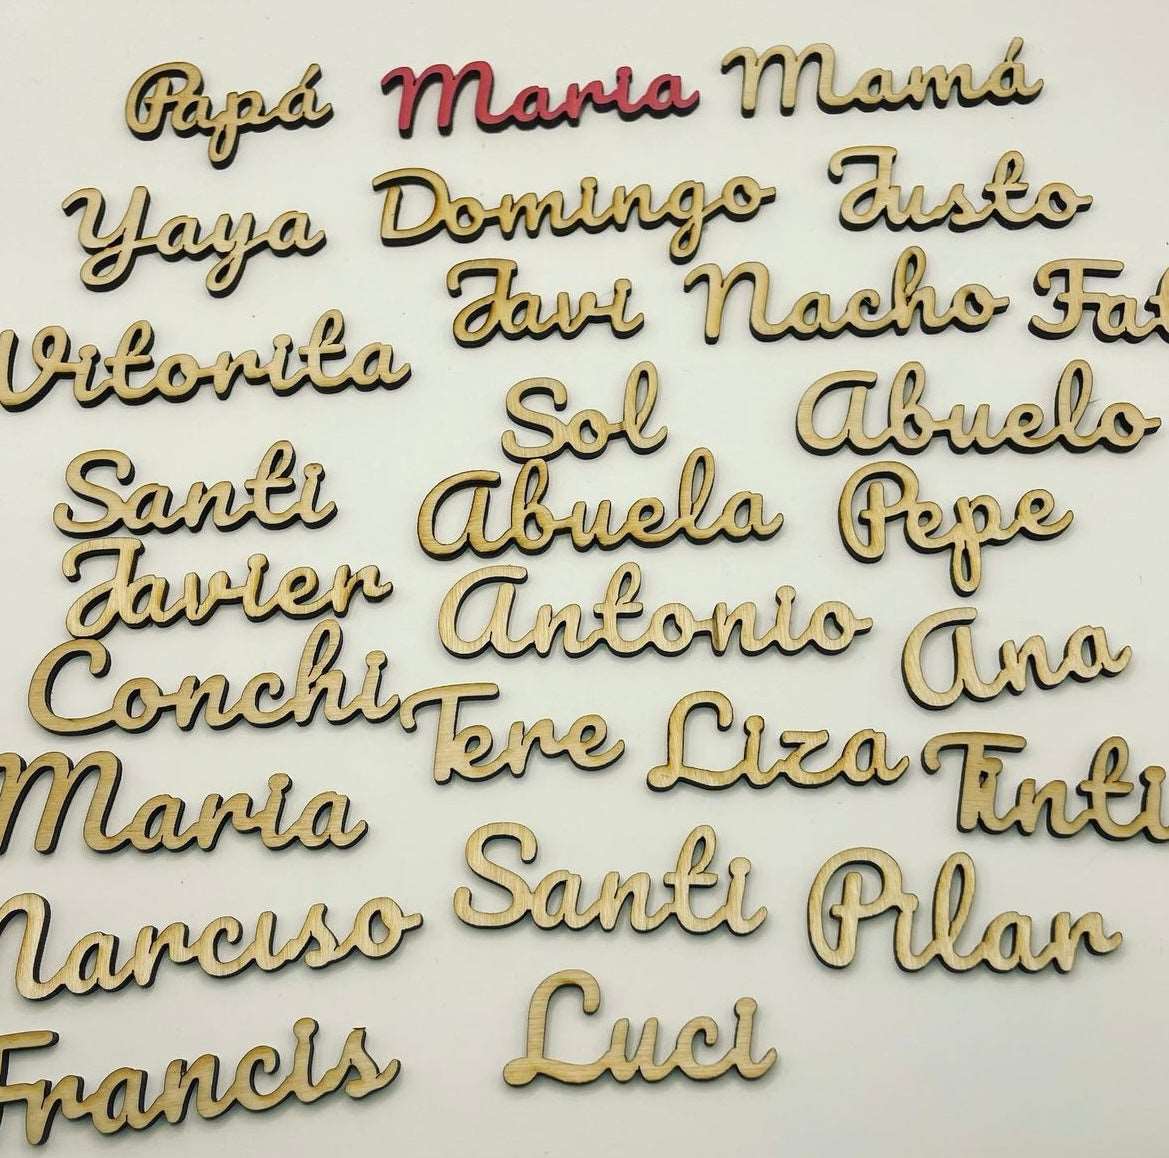 Papá Maria Mamá
Yaya Domingo Justo
Javi Nacho
Vitorita
Sol Abuelo
Santi Abuela Pepe
Javier Antonio Ana
Conchi Tere Liza Tinti
Maria
Narciso Santi Pilar
Francis Luci